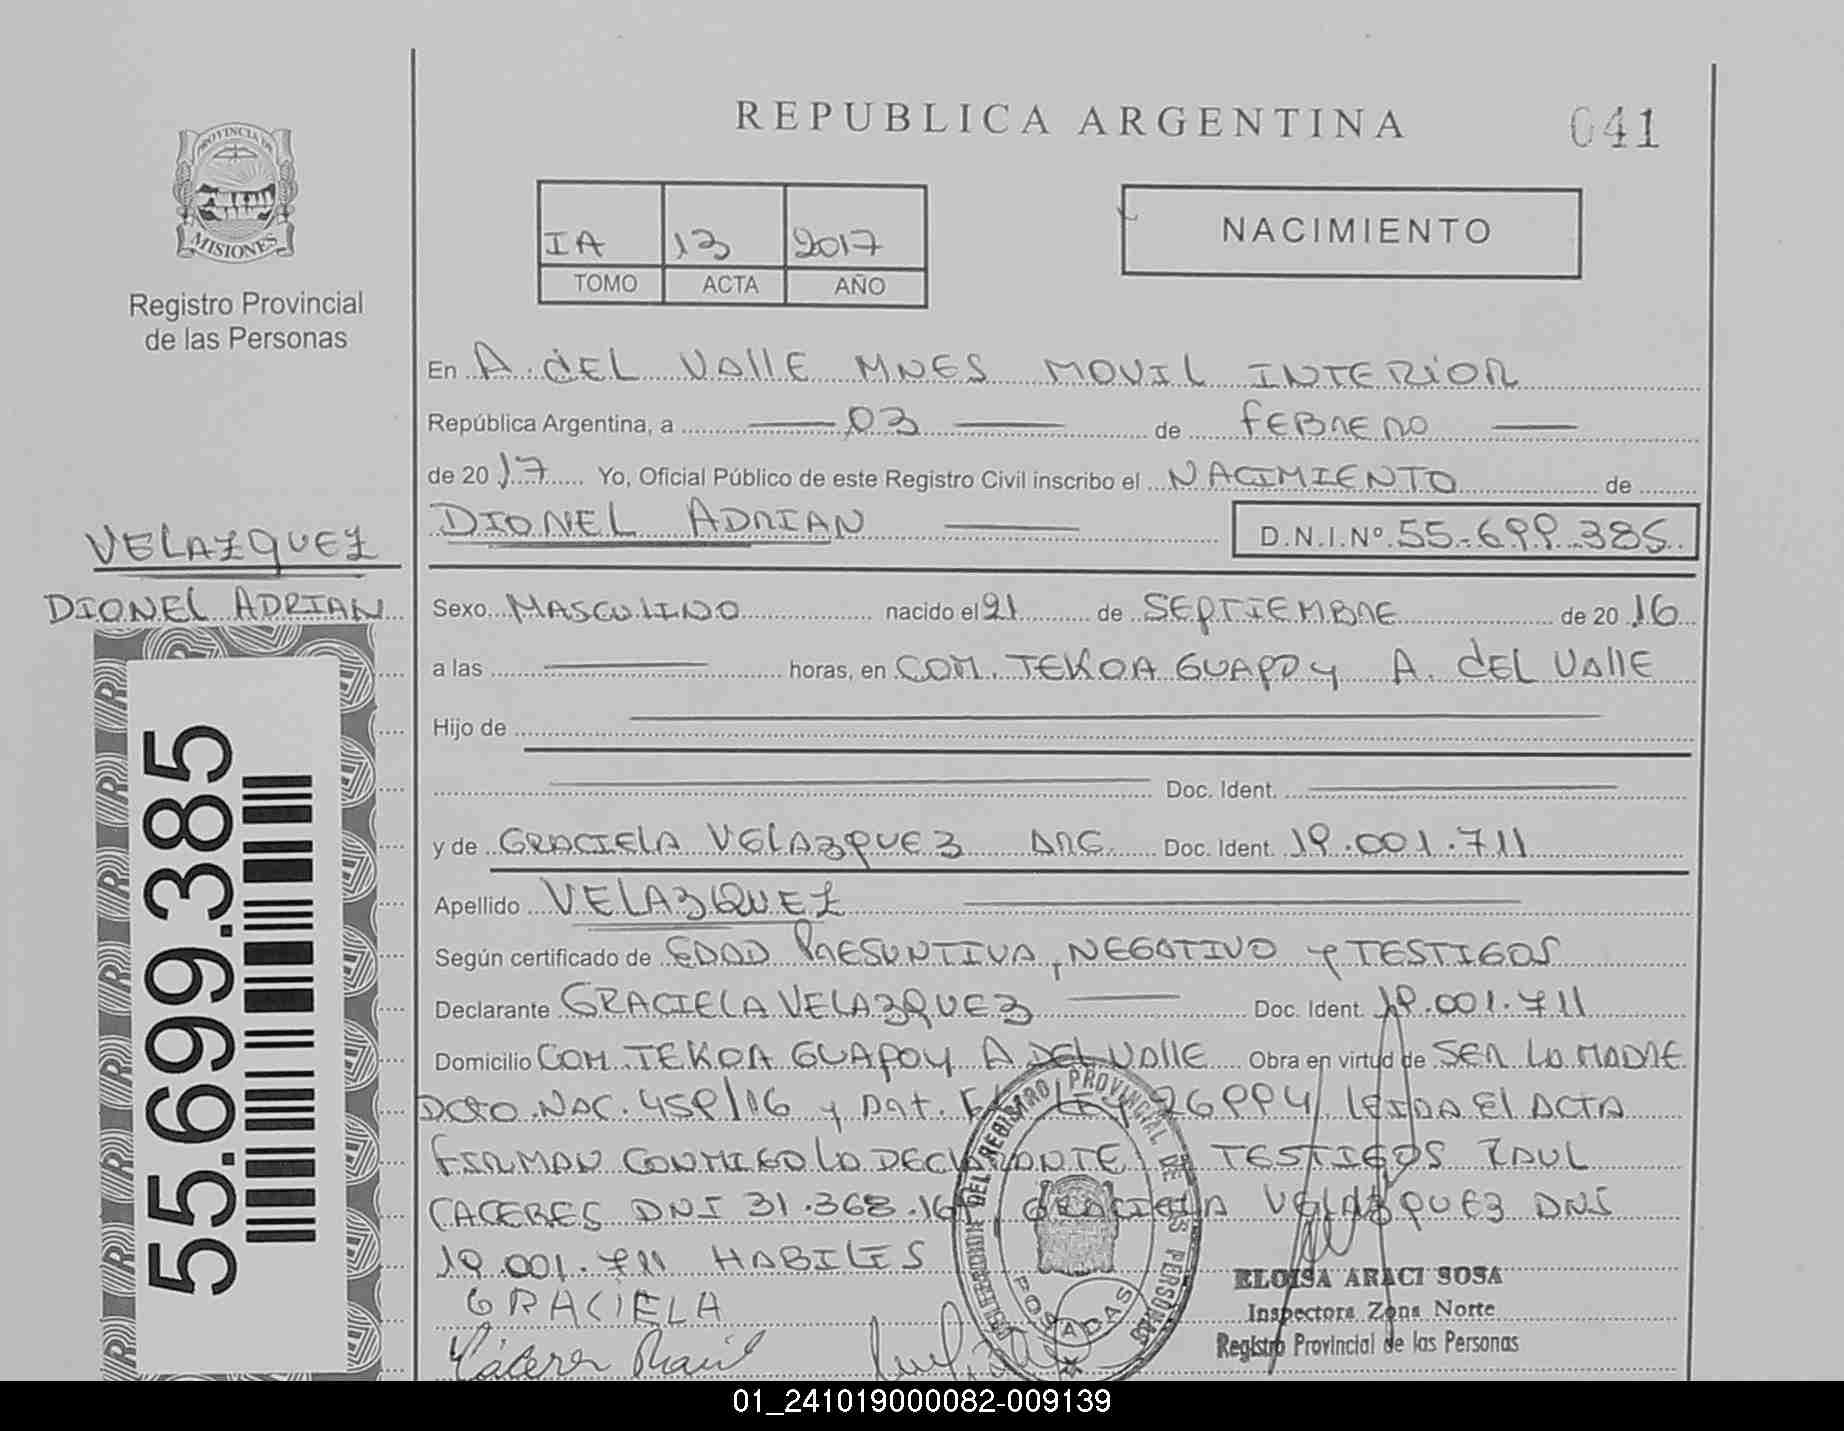 REPUBLICA ARGENTINA
041
PROVINCIA DE
MISIONES
Registro Provincial
de las Personas
IA 13 2017
TOMO ACTA AÑO
NACIMIENTO
En A. del Valle Mnes Movil Interior
República Argentina, a 03 de Febrero
de 2017 Yo, Oficial Público de este Registro Civil inscribo el NACIMIENTO de
DIONEL ADRIAN D.N.I.Nº 55.699.385
VELAZQUEZ
DIONEL ADRIAN
Sexo MASCULINO nacido el 21 de SEPTIEMBRE de 2016
a las horas, en COM. TEKOA GUAPOY A. del Valle
Hijo de
Doc. Ident.
y de GRACIELA VELAZQUEZ ARG. Doc. Ident. 19.001.711
Apellido VELAZQUEZ
Según certificado de EDAD PRESUNTIVA, NEGATIVO y TESTIGOS
Declarante GRACIELA VELAZQUEZ Doc. Ident. 19.001.711
Domicilio COM. TEKOA GUAPOY A. DEL VALLE Obra en virtud de SER LA MADRE
DCTO. NAC. 459/16 y LEY 26994 LEIDA El ACTA
FIRMAN CONMIGO LA DECLARANTE TESTIGOS RAUL
CACERES DNI 31.368.16 GRACIELA VELAZQUEZ DNI
19.001.711 HABILES
GRACIELA
Cáceres Raúl
DEL REGISTRO PROVINCIAL DE LAS PERSONAS
POSADAS
ELOISA ARACI SOSA
Inspectora Zona Norte
Registro Provincial de las Personas
55.699.385
01_241019000082-009139